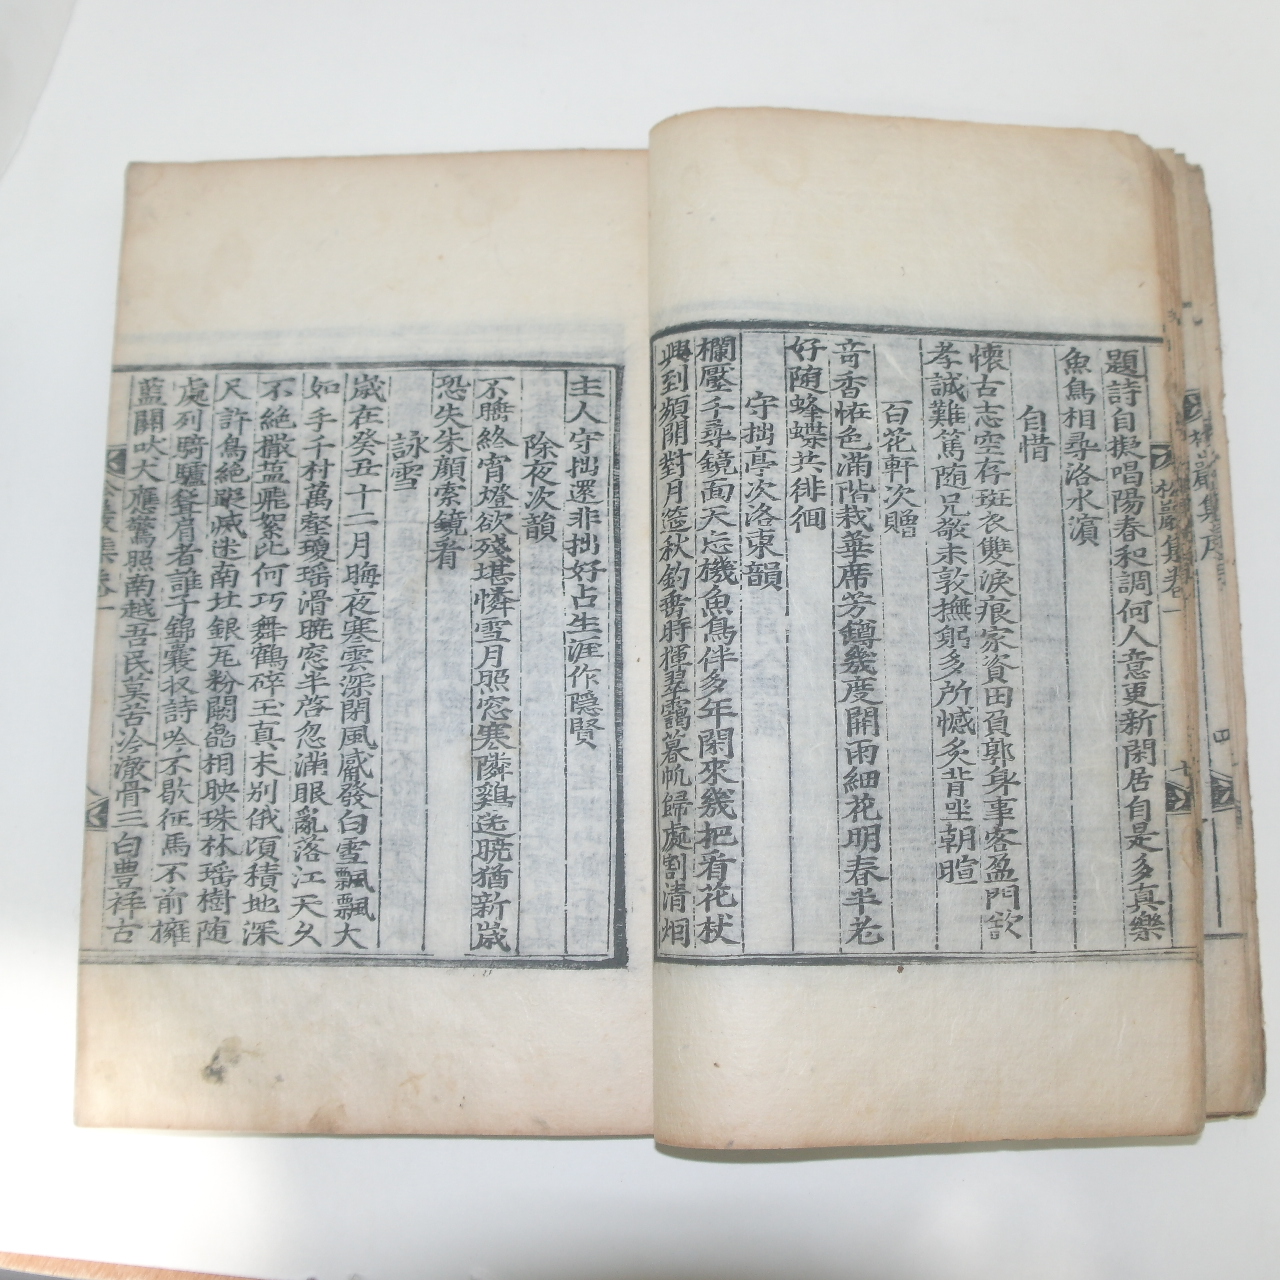 題詩自擬唱陽春和調何人意更新閑居自是多真樂
魚鳥相尋洛水濵
自惜
懷古志空存斑衣雙淚痕家資田負郭身事客盈門欲
孝誠難篤随兄敬未敦撫躬多所憾炙背坐朝暄
百花軒次贈
奇香恠色滿階栽華席芳鐏幾度開雨細花明春半老
好随蜂蝶共徘徊
守拙亭次洛東韻
欄壓千尋鏡面天忘機魚鳥伴多年閑來幾把看花杖
興到頻開對月筵秋釣罾時揮翠靄暮帆歸處割清烟
主人守拙還非拙好占生涯作隠賢
除夜次韻
不瞻終宵燈欲殘堪憐雪月照窓寒隣鷄送暁猶新歲
恐失朱顔索鏡看
詠雪
歲在癸丑十二月晦夜寒雲深閉風威發白雪飄飄大
如手千村萬壑瓊瑶滑暁窓半啓忽滿眼亂落江天久
不絶撒盐飛絮比何巧舞鶴碎玉真未别俄頃積地深
尺許鳥絶蹤滅迷南北銀瓦粉闕皛相映珠林瑶樹随
處列騎驢聳肩者誰子錦囊収詩吟不歇征馬不前擁
藍關吠犬應驚照南越吾民莫苦冷澈骨三白豊祥古
松巖集卷一
松巖集序
四